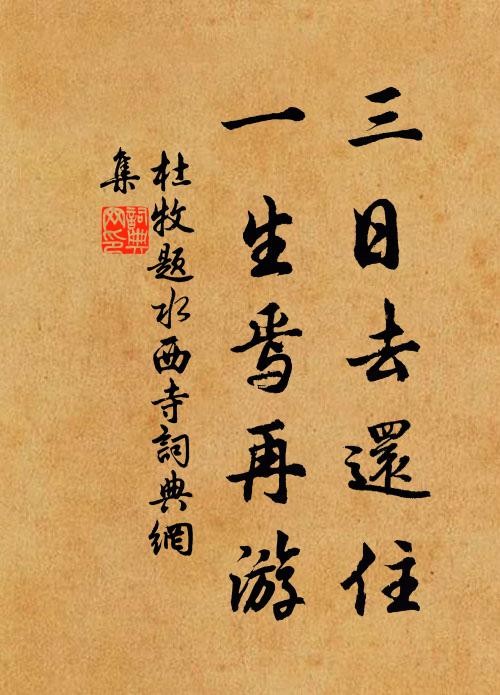 三日去還住
一生焉再游
杜牧題水西寺詞典網
集
詞典
网印